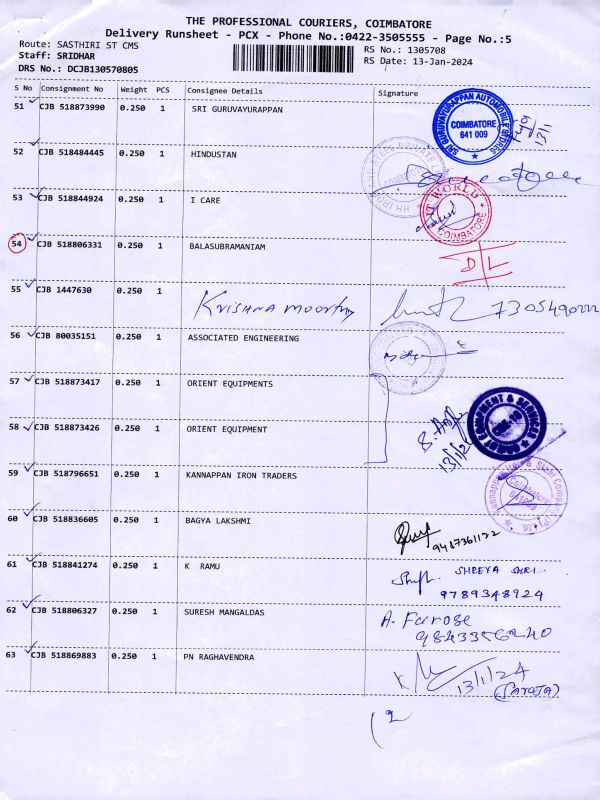 THE PROFESSIONAL COURIERS, COIMBATORE
Delivery Runsheet - PCX - Phone No.:0422-3505555 - Page No.:5
Route: SASTHIRI ST CMS
RS No.: 1305708
Staff: SRIDHAR
RS Date: 13-Jan-2024
DRS No.: DCJB130570805
S No Consignment No Weight PCS Consignee Details Signature
51 CJB 518873990 0.250 1 SRI GURUVAYURAPPAN
SRI GURUVAYURAPPAN AUTOMOBILE STORES
COIMBATORE
641 009
13/1
52 CJB 518484445 0.250 1 HINDUSTAN
53 CJB 518844924 0.250 1 I CARE
IT WORLD
COIMBATORE
54 CJB 518806331 0.250 1 BALASUBRAMANIAM
D/L
55 CJB 1447630 0.250 1 Krishna moorthy
56 CJB 80035151 0.250 1 ASSOCIATED ENGINEERING
57 CJB 518873417 0.250 1 ORIENT EQUIPMENTS
58 CJB 518873426 0.250 1 ORIENT EQUIPMENT
59 CJB 518796651 0.250 1 KANNAPPAN IRON TRADERS
60 CJB 518836605 0.250 1 BAGYA LAKSHMI
9487361122
61 CJB 518841274 0.250 1 K RAMU
SHREYA SHRI
9789348924
62 CJB 518806327 0.250 1 SURESH MANGALDAS
A. Farose
63 CJB 518869883 0.250 1 PN RAGHAVENDRA
13/1/24